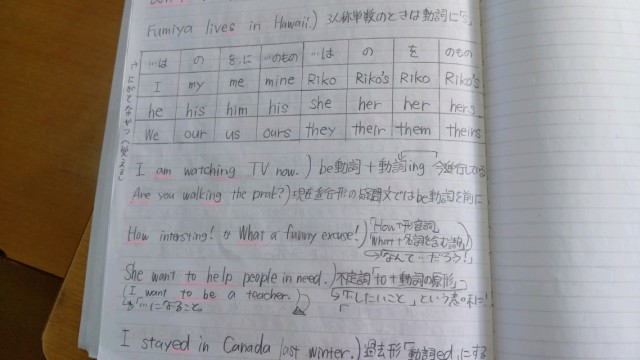 Fumiya lives in Hawaii.) 3人称単数のときは動詞に「s」
…は の を、に …のもの …は の を のもの
I my me mine Riko Riko's Riko Riko's
he his him his she her her hers
We our us ours they their them theirs
I am watching TV now. ) be動詞 + 動詞ing 今進行している
Are you walking the prak?) 現在進行形の疑問文ではbe動詞を前に
How intersting! What a funny excuse!) 「How+形容詞」
「What+名詞を含む語句!」
→「なんて…だろう!」
She want to help people in need. ) 不定詞「to+動詞の原形」
(I want to be a teacher. ) 「…したいこと」という意味に!
になること。
I stayed in Canada last winter. ) 過去形「動詞ed」にする